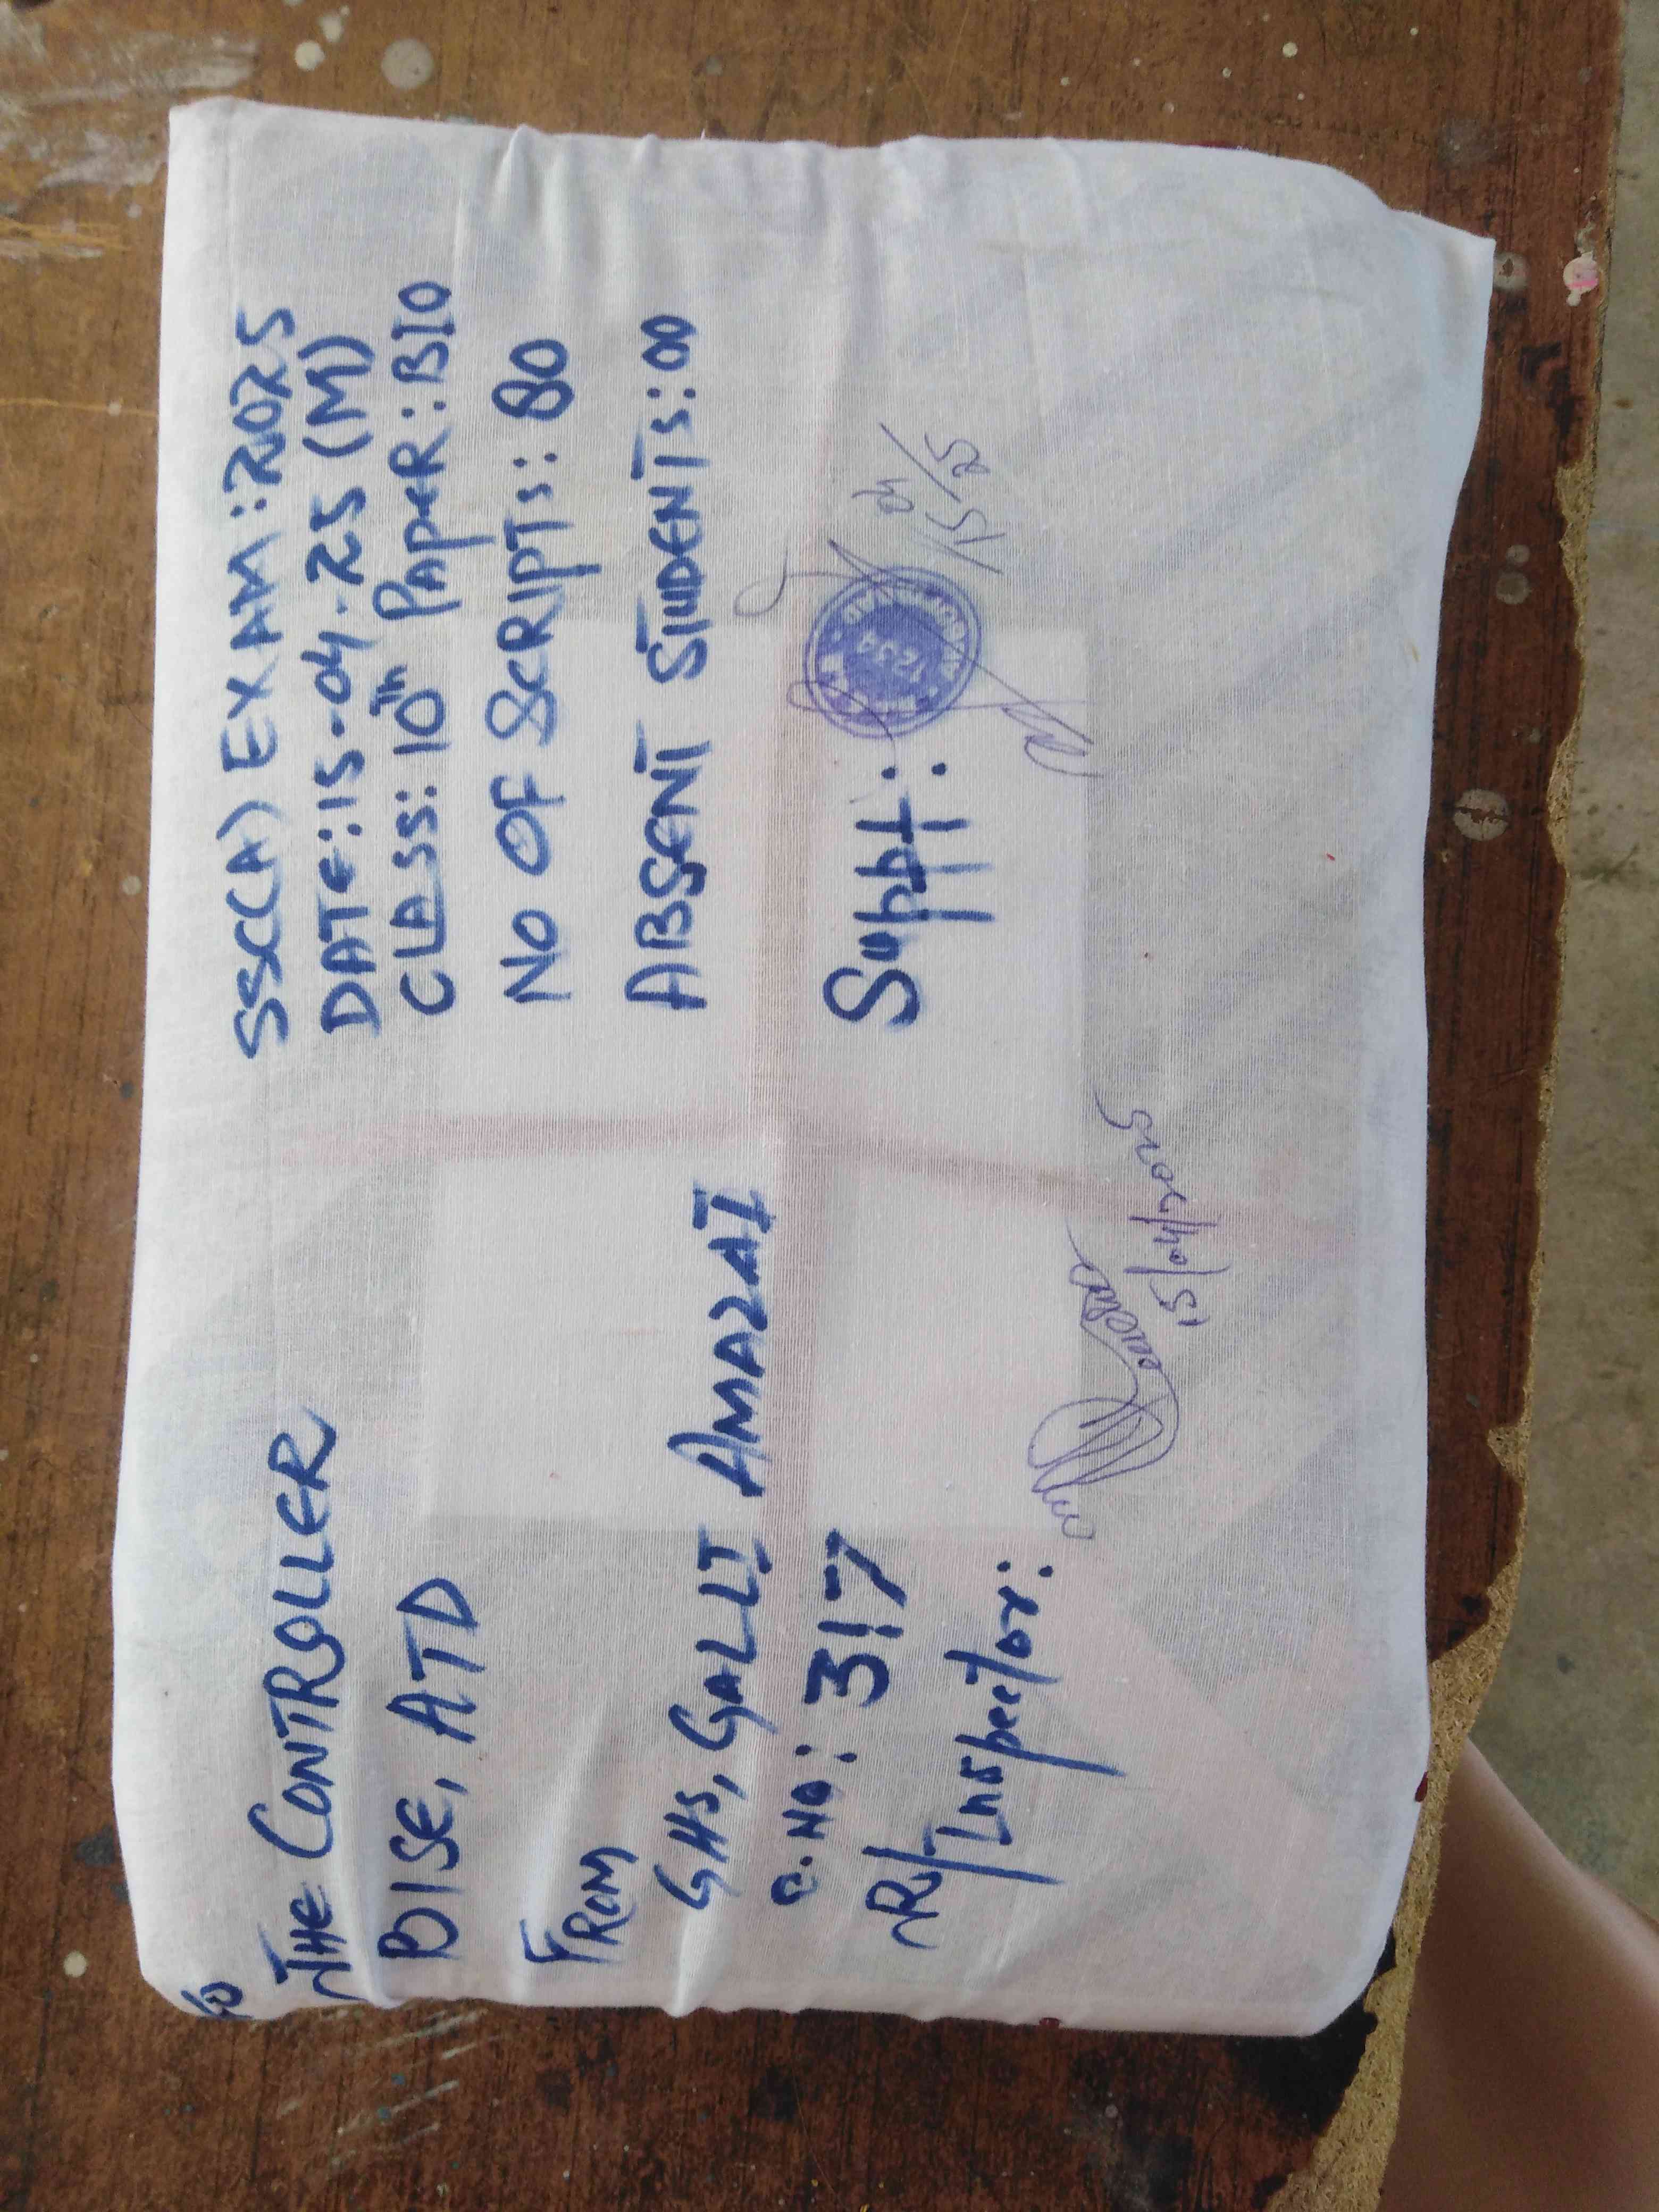 To
THE CONTROLLER
BISE, ATD
FROM
GHS, GALLI AMAZAI
C.NO: 317
R/Inspector:
15/04/2025
SSC(A) EXAM:2025
DATE:15-04-25 (M)
CLASS:10th PAPER:BIO
NO OF SCRIPTS: 80
ABSENT STUDENTS:00
Supptt:
15/04/25